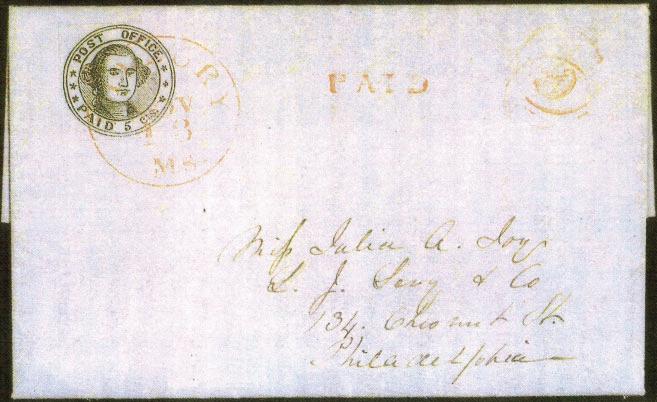 POST OFFICE.
PAID 5 Cts.
URY
13
MS
PAID
Miss Julia A. Joy
L. J. Levy & Co
134. Chesnut St.
Philadelphia